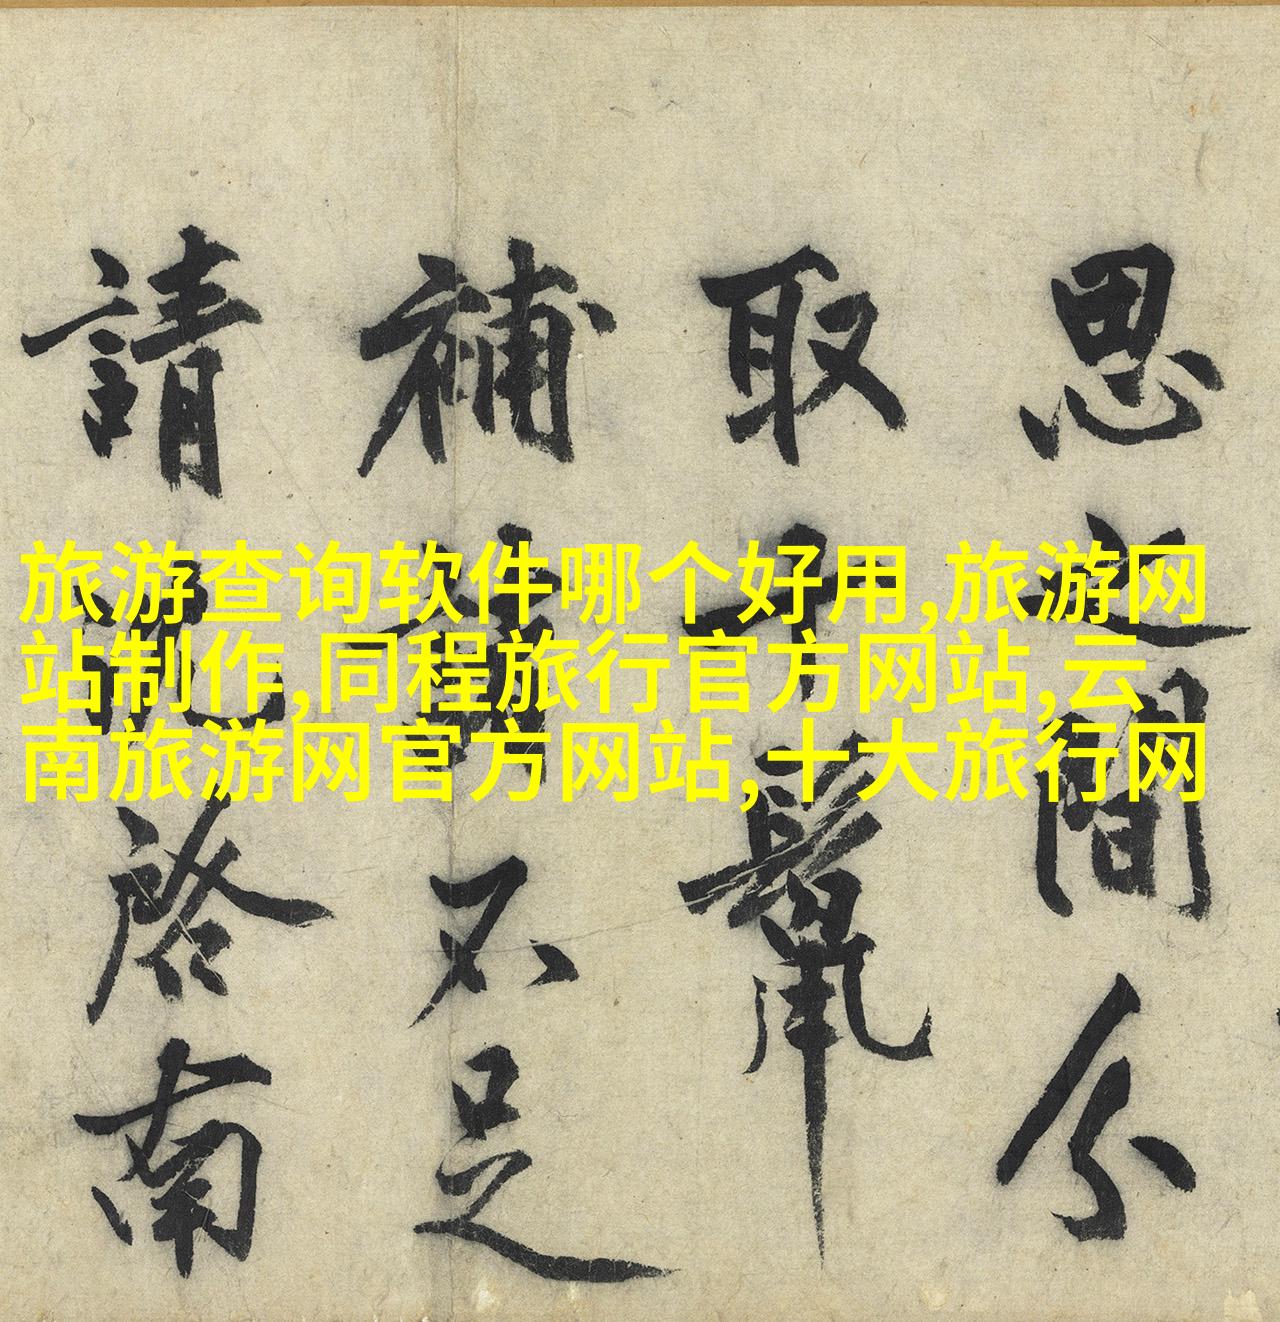 思之間分
取
補不足
請啓南
旅游查询软件哪个好用,旅游网
站制作,同程旅行官方网站,云
南旅游网官方网站,十大旅行网